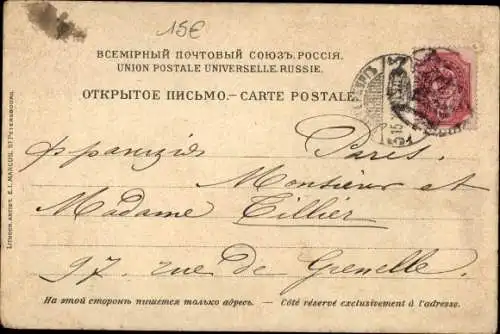 15€
ВСЕМІРНЫЙ ПОЧТОВЫЙ СОЮЗЪ. РОССІЯ.
UNION POSTALE UNIVERSELLE. RUSSIE.
ОТКРЫТОЕ ПИСЬМО.—CARTE POSTALE.
Paris.
Monsieur et
Madame Tillier
97. rue de Grenelle.
На этой сторонѣ пишется только адресъ. — Côté réservé exclusivement à l'adresse.
LITHOGR. ARTIST. E. I. MARCUS, ST PETERSBOURG.